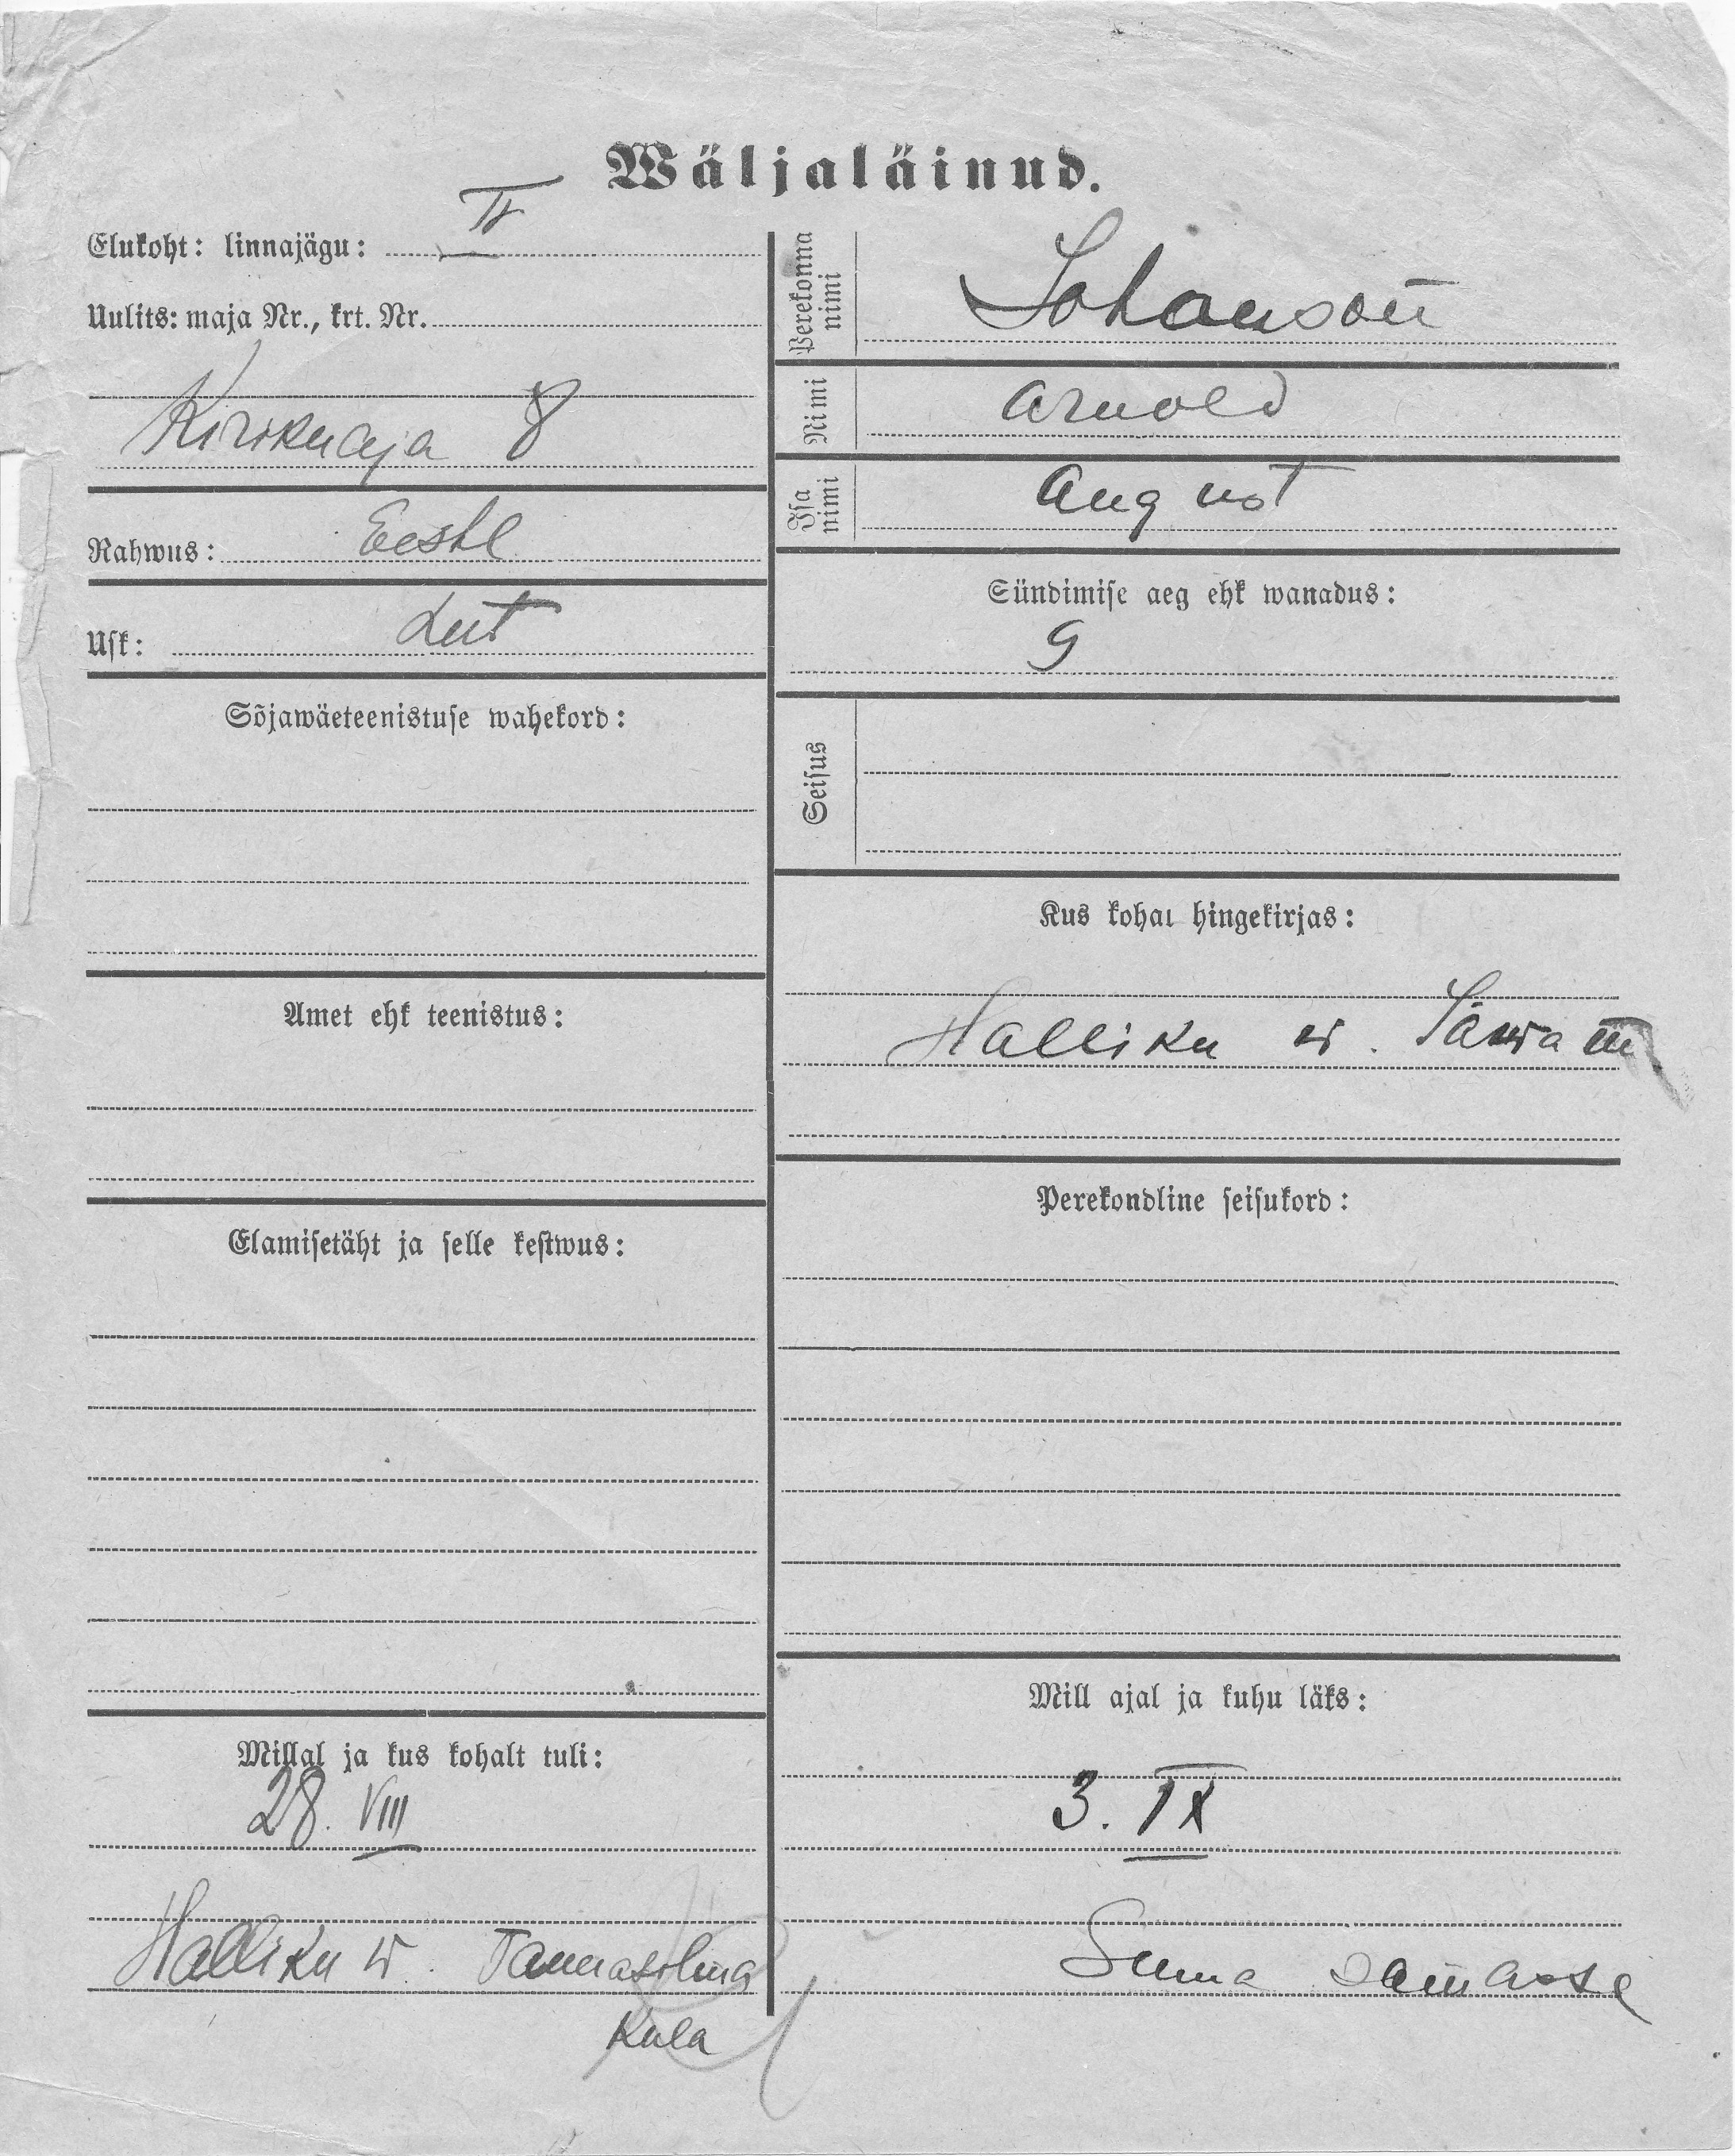 Wäljaläinud.
Elukoht: linnajägu: II
Uulits: maja Nr., krt. Nr.
Kirikuaja 8
Rahwus: Eesti
Usk: Lut
Sõjawäeteenistuse wahekord:
Amet ehk teenistus:
Elamisetäht ja selle kestwus:
Millal ja kus kohalt tuli:
28. VIII
Halliku w. Tammasilma
Kula
Perekonna nimi Johanson
Nimi Arnold
Isa nimi August
Sündimise aeg ehk wanadus:
9
Seisus
Kus kohal hingekirjas:
Halliku w.
Perekondline seisukord:
Mill ajal ja kuhu läks:
3. IX
Sinna samasse